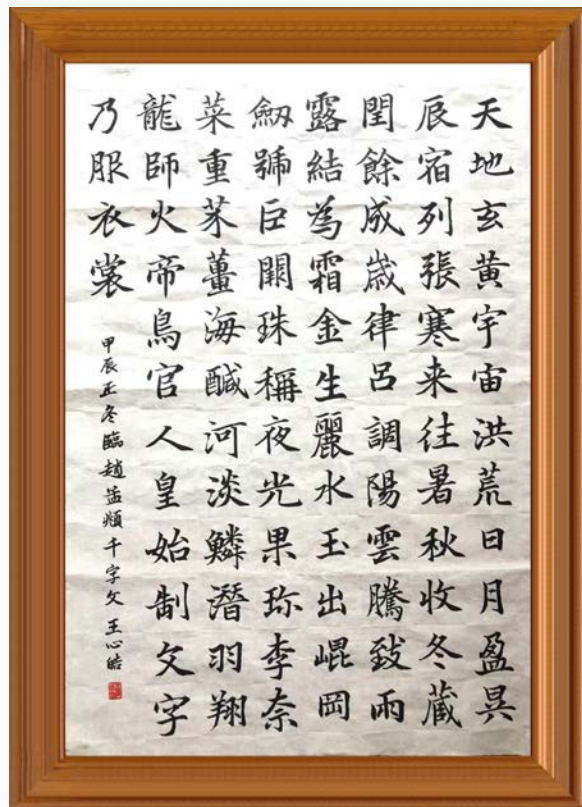 天地玄黄宇宙洪荒日月盈昃
辰宿列張寒来往暑秋收冬藏
閏餘成歲律吕調陽雲騰致雨
露結為霜金生麗水玉出崐岡
劒號巨闕珠稱夜光果珎李柰
菜重芥薑海鹹河淡鱗潛羽翔
龍師火帝鳥官人皇始制文字
乃服衣裳
甲辰正冬臨趙孟頫千字文 王心皓